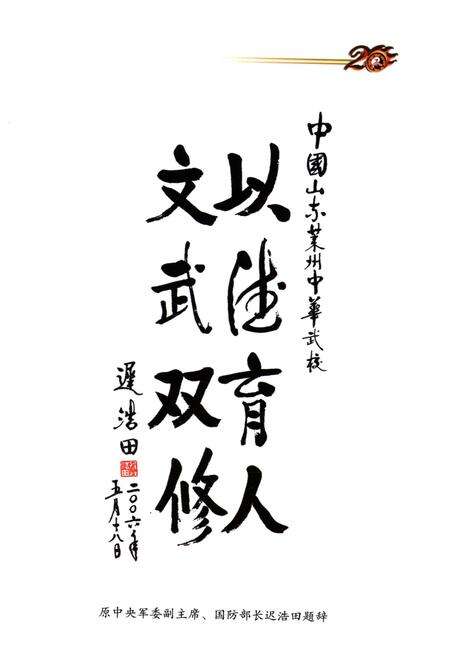 20
中國山东莱州中華武校
以德育人
文武双修
遲浩田
二〇〇六年
五月十八日
原中央军委副主席、国防部长迟浩田题辞